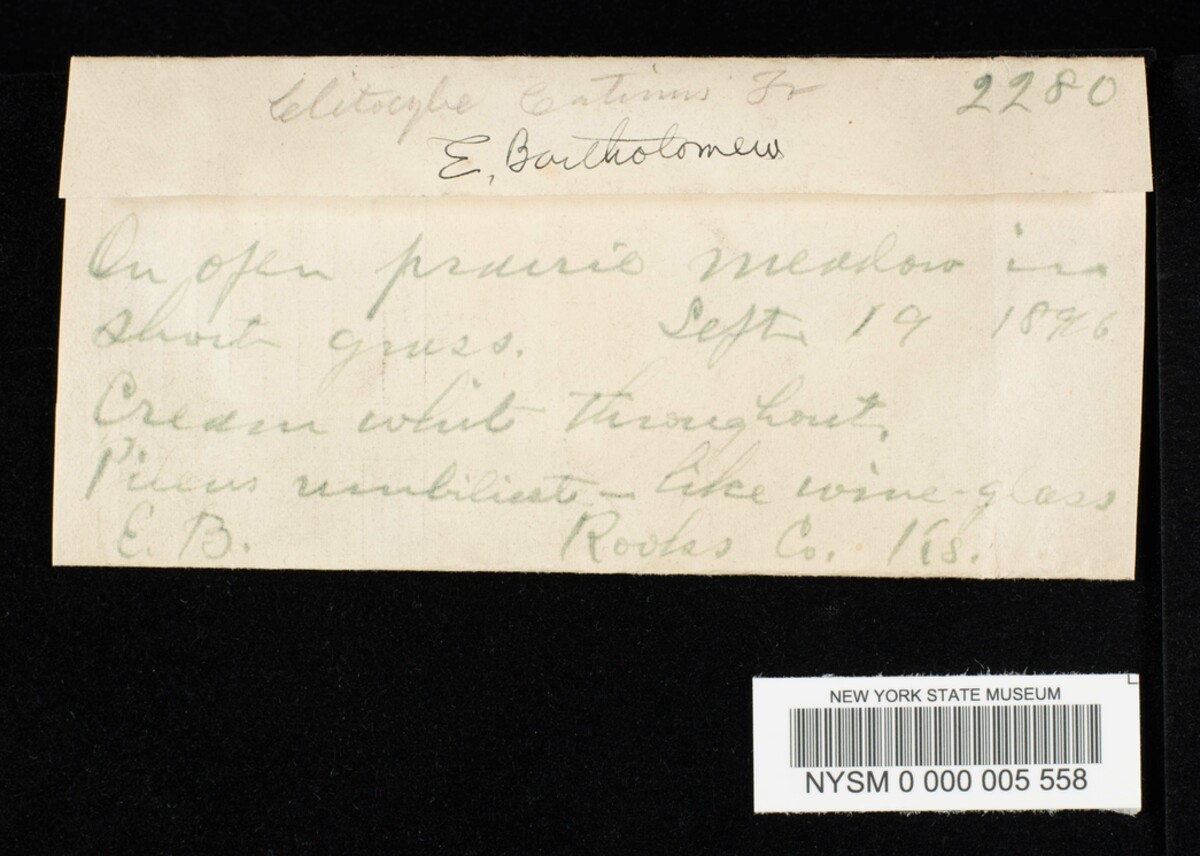 Clitocybe Catinus Fr 2280
E. Bartholomew
On open prairie meadow in
short grass. Sept. 19 1896
Cream white throughout.
Pileus umbilicate - like wine-glass
E. B. Rooks Co. Ks.
NEW YORK STATE MUSEUM
NYSM 0 000 005 558